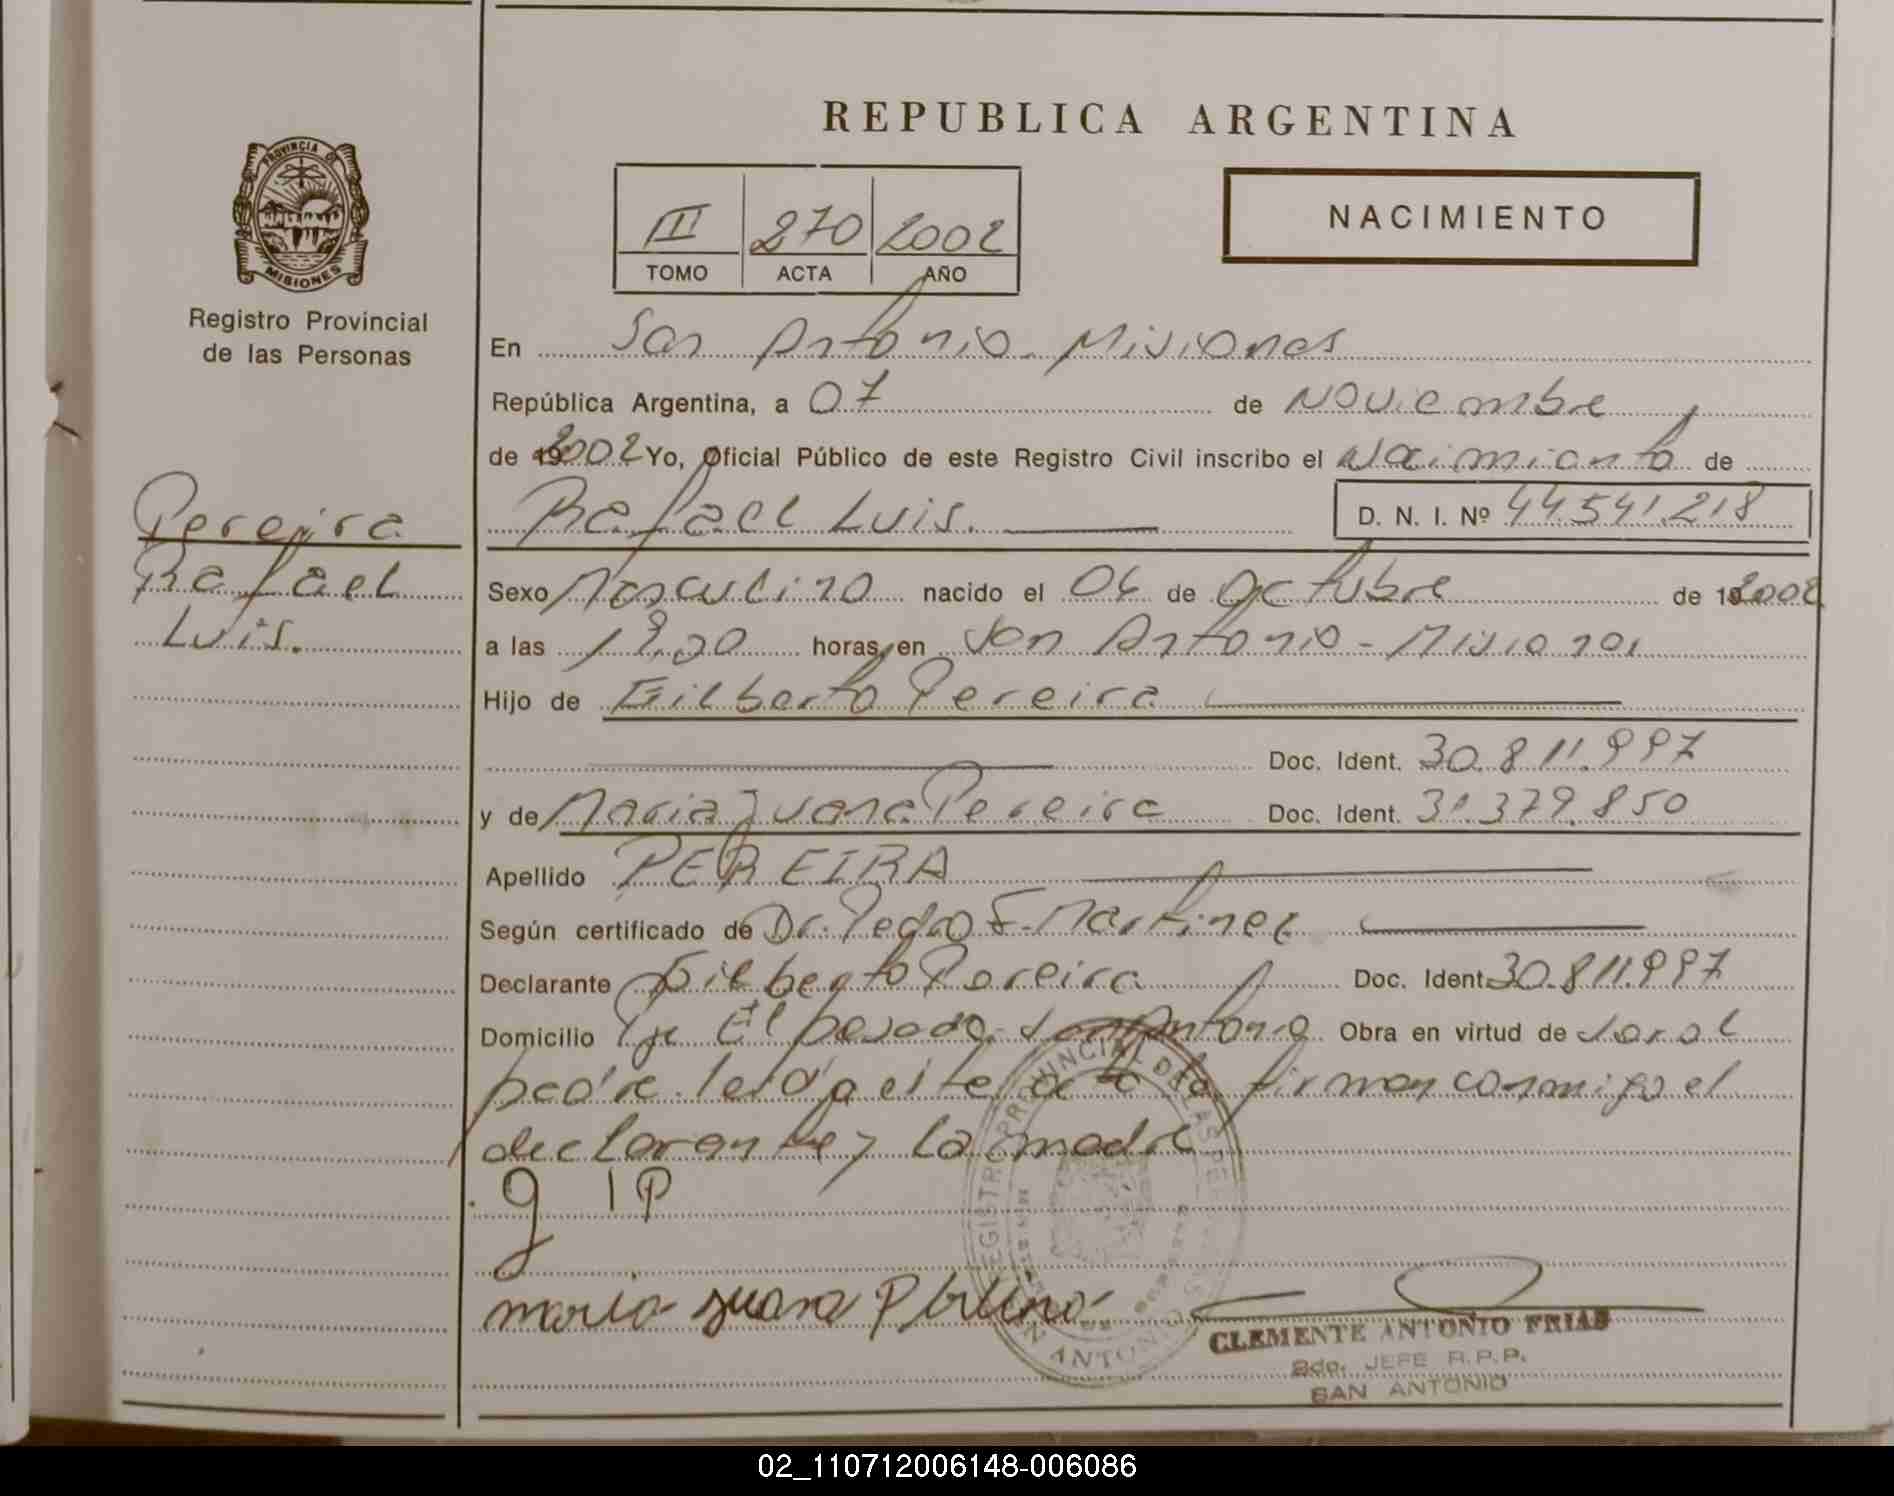 REPUBLICA ARGENTINA
PROVINCIA DE
MISIONES
Registro Provincial
de las Personas
III 270 2002
TOMO ACTA AÑO
NACIMIENTO
En San Antonio - Misiones
República Argentina, a 07 de Noviembre
de 2002 Yo, Oficial Público de este Registro Civil inscribo el Nacimiento de
Rafael Luis. D. N. I. Nº 44.541.218
Pereira
Rafael
Luis.
Sexo Masculino nacido el 06 de Octubre de 2002
a las horas, en San Antonio - Misiones
Hijo de Gilberto Pereira
Doc. Ident. 30.811.997
y de Maria Juana Pereira Doc. Ident. 31.379.850
Apellido PEREIRA
Según certificado de Dr. Pedro E. Martinez
Declarante Gilberto Pereira Doc. Ident. 30.811.997
Domicilio Pje El San Antonio Obra en virtud de
padre leida este acta firman conmigo el
declarante y la madre
g IP
maria juana
REGISTRO PROVINCIAL DE LAS PER
SAN ANTONIO
CLEMENTE ANTONIO FRIAS
Sdo. JEFE R.P.P.
SAN ANTONIO
02_110712006148-006086